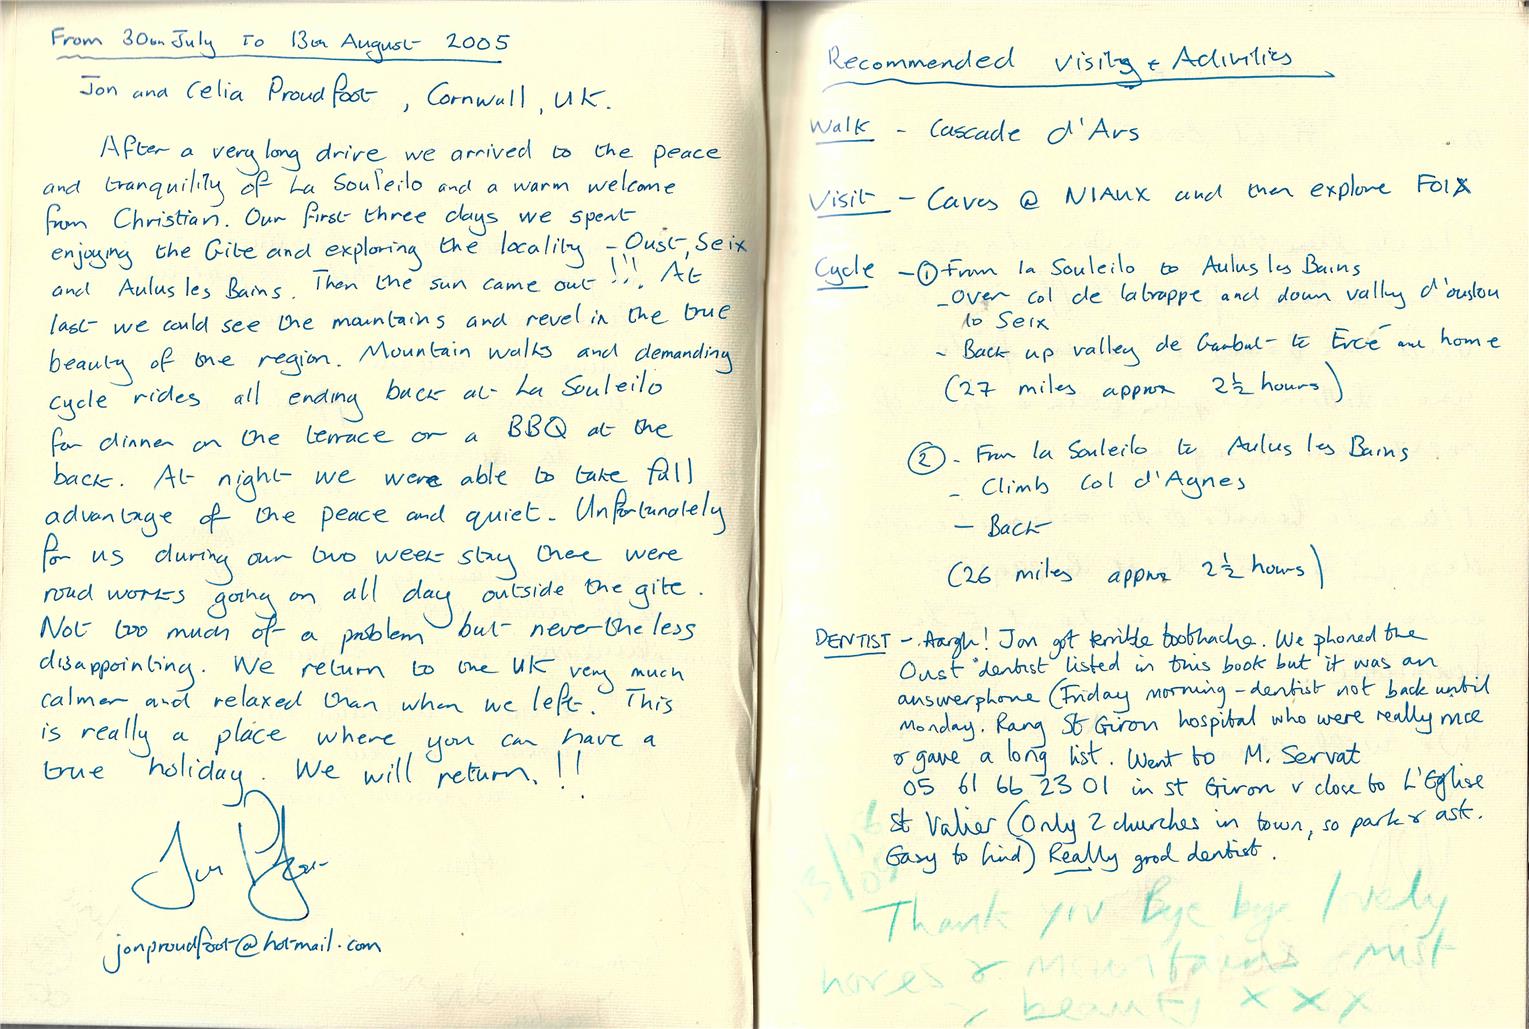 From 30th July to 13th August 2005
Jon and Celia Proudfoot, Cornwall, UK.
After a very long drive we arrived to the peace
and tranquility of La Souleilo and a warm welcome
from Christian. Our first three days we spent
enjoying the Gite and exploring the locality - Oust, Seix
and Aulus les Bains. Then the sun came out !!! At
last we could see the mountains and revel in the true
beauty of the region. Mountain walks and demanding
cycle rides all ending back at La Souleilo
for dinner on the terrace or a BBQ at the
back. At night we were able to take full
advantage of the peace and quiet. Unfortunately
for us during our two week stay there were
road works going on all day outside the gite.
Not too much of a problem but nevertheless
disappointing. We return to the UK very much
calmer and relaxed than when we left. This
is really a place where you can have a
true holiday. We will return.!!
jonproudfoot@hotmail.com
Recommended visits & Activities
Walk - Cascade d'Ars
Visit - Caves @ NIAUX and then explore FOIX
Cycle - ① From la Souleilo to Aulus les Bains
- Over col de latrappe and down valley d'ouslou
to Seix
- Back up valley de Garbet to Ercé and home
(27 miles approx 2½ hours)
② - From la Souleilo to Aulus les Bains
- Climb Col d'Agnes
- Back
(26 miles approx 2½ hours)
DENTIST - Aargh! Jon got terrible toothache. We phoned the
Oust dentist listed in this book but it was an
answerphone (Friday morning - dentist not back until
Monday. Rang St Giron hospital who were really nice
& gave a long list. Went to M. Servat
05 61 66 23 01 in St Giron v close to L'Eglise
St Valier (Only 2 churches in town, so park & ask.
Easy to find) Really good dentist.
Thank you Bye bye lovely
& mountains mist
beauty x x x